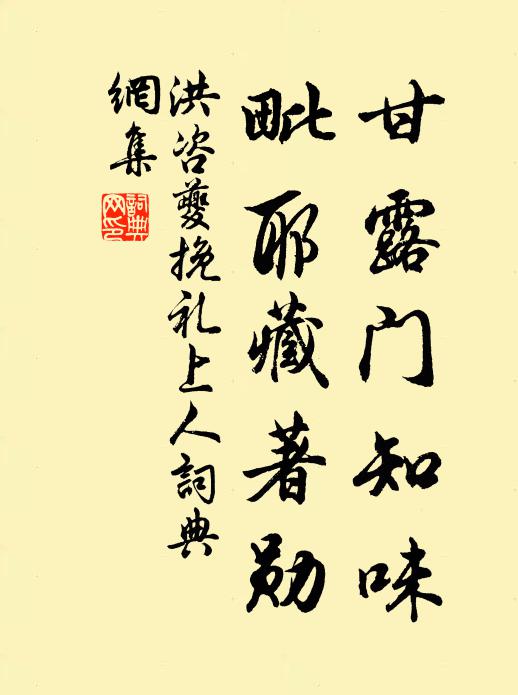 甘露门知味
毗耶藏著勋
洪咨夔挽礼上人词典
網集
詞典
网印